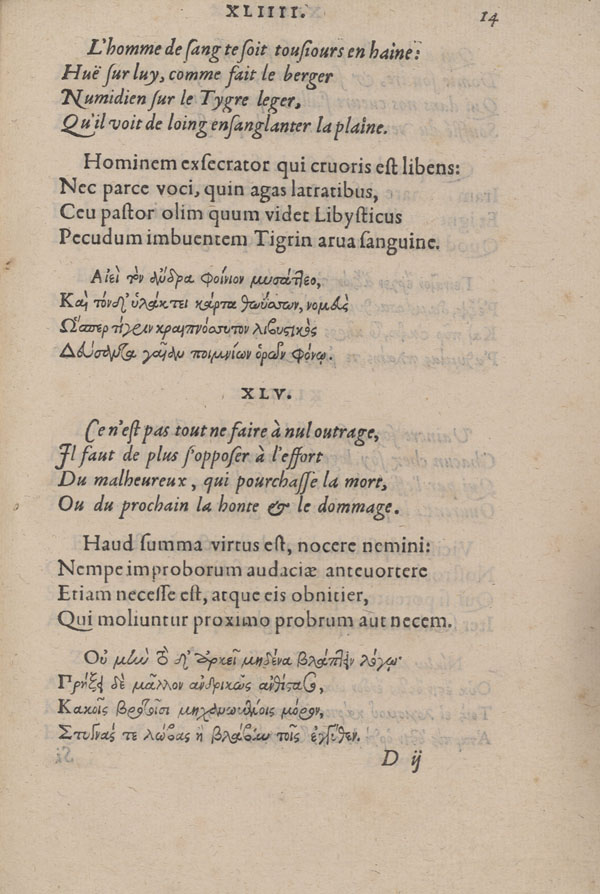 XLIIII.
14
L'homme de sang te soit tousiours en haine:
Huë sur luy, comme fait le berger
Numidien sur le Tygre leger,
Qu'il voit de loing ensanglanter la plaine.
Hominem exsecrator qui cruoris est libens:
Nec parce voci, quin agas latratibus,
Ceu pastor olim quum videt Libysticus
Pecudum imbuentem Tigrin arua sanguine.
Αἰεὶ τὸν ἄνδρα φοίνιον μυσάττεο,
Καὶ τόνδ' ὑλάκτει κάρτα θωΰσσων, νομεὺς
Ὥσπερ τίγριν λιβυστικὸς
γαῖαν ποιμνίων ὁρῶν φόνῳ.
XLV.
Ce n'est pas tout ne faire à nul outrage,
Il faut de plus s'opposer à l'effort
Du malheureux, qui pourchasse la mort,
Ou du prochain la honte & le dommage.
Haud summa virtus est, nocere nemini:
Nempe improborum audaciæ anteuortere
Etiam necesse est, atque eis obnitier,
Qui moliuntur proximo probrum aut necem.
Οὐ μὲν μηδένα βλάπτειν λόγῳ·
δὲ μᾶλλον ἀνδρικῶς
Κακοῖς βροτοῖσι μόρον,
Στυγνάς τε λώβας ἢ βλάβην τοῖς ἐγγύθεν.
D ij